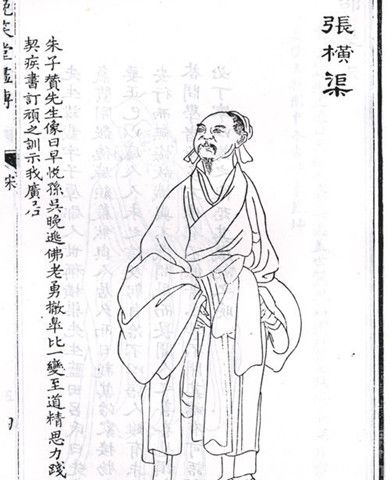 張橫渠
朱子贊先生像曰早悅孫吳晚逃佛老勇撤皐比一變至道精思力踐
契疾書訂頑之訓示我廣居
晚笑堂畫傳
宋